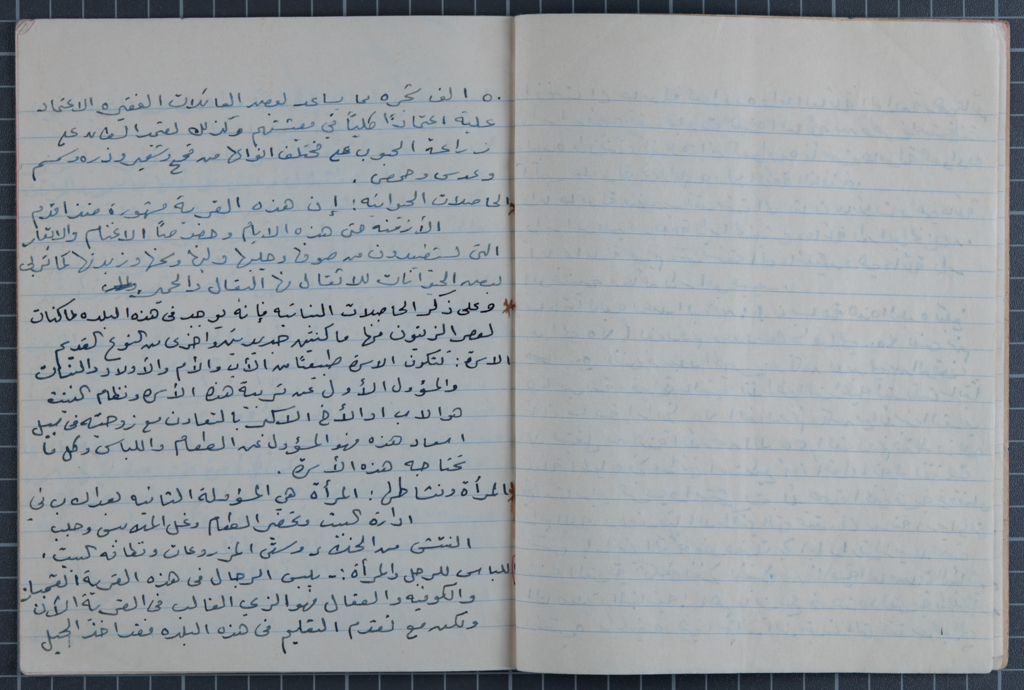 ٥٠ الف شجره مما يساعد بعض العائلات الفقيره الاعتماد
عليه اعتمادًا كليًا في معيشتهم وكذلك يعتمد السكان على
زراعة الحبوب على مختلف انواعها من قمح وشعير وذره وسمسم
وعدس وحمص .
الحاصلات الحيوانيه : إن هذه القرية مشهورة منذ اقدم
الأزمنه حتى هذه الايام وخصوصًا الاغنام والابقار
التي يستفيدون من صوفها وحليبها ولبنها وسمنها وزبدتها كما تربى
بعض الحيوانات للانتقال بها البغال والحمير
وعلى ذكر الحاصلات النباتيه فإنه يوجد في هذه البلده ماكنات
لعصر الزيتون منها ماكنتين جديدتين واخرى من النوع القديم
الاسرة : تتكون الاسرة طبيعيًا من الأب والأم والأولاد والبنات
والمسؤول الأول عن تربية هذه الأسره ونظام البيت
هو الاب او الأخ الاكبر بالتعاون مع زوجته في سبيل
اسعاد هذه فهو المسؤول عن الطعام واللباس وكل ما
تحتاجه هذه الأسرة .
المرأة ونشاطها : المرأة هي المسؤولة الثانيه بعد الاب في
ادارة البيت وتحضير الطعام وغسل الملابس وحلب
من وسقي المزروعات ونظافه البيت .
اللباس للرجل والمرأة :- يلبس الرجال في هذه القرية القمباز
والكوفيه والعقال فهو الزي الغالب في القرية الأن
ولكن مع تقدم التعليم في هذه البلده فقد اخذ الجيل